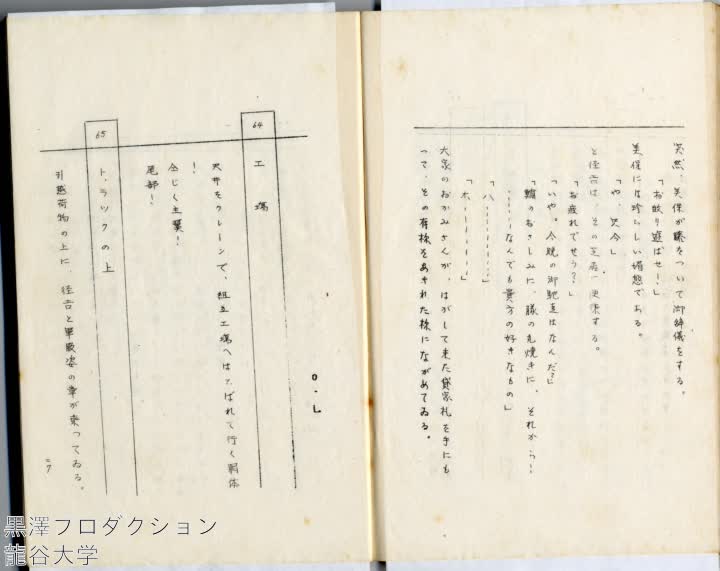 突然、美保が膝をついて御辞儀をする。
「お帰り遊ばせ!」
美保には珍らしい媚態である。
「や、只今」
と径吉は、その芝居に更束する。
「お疲れでせう?」
「いや。今晩の御馳走はなんだ?」
「鰯のおさしみに、豚の丸焼きに、それから!
……なんでも貴方の好きなもの」
「ハ…………」
「ホ…………」
大家のおかみさんが、はがして来た貸家札を手にも
つて、その有様をあきれた様にながめてゐる。
O・L
64
工場
天井をクレーンで、組立工場へはこばれて行く胴体
!
仝じく主翼!
尾部!
65
トラックの上
引越荷物の上に、径吉と軍服姿の章が乗つてゐる。
黒澤プロダクション
龍谷大学